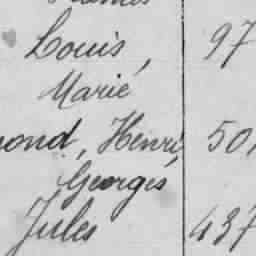 Louis, 97
Marie
mond, Henri, 501
Georges
Jules 437